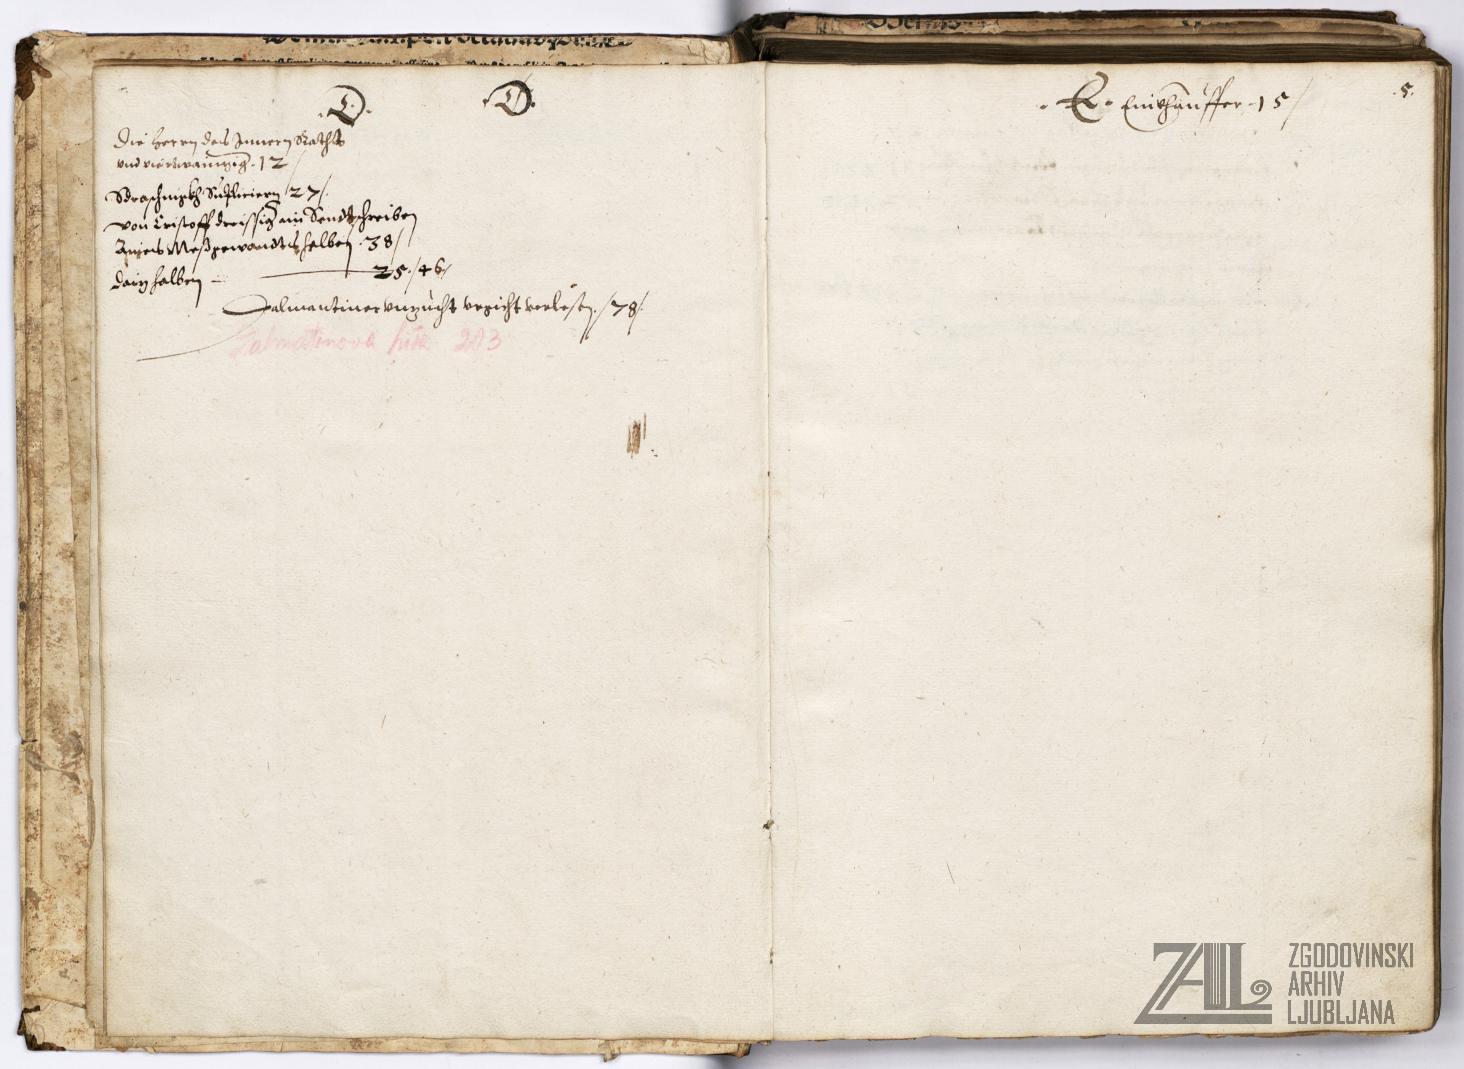 .D. .D.
Die Herrn des Innern Raths
und vierundzwainzig. 12
Straschnigkh Supliciern 27/.
von Cristoff dreissig ain Sendtschreiben
Meßgewandts halben 38/
halben — 25./46/
Dalmantiner unzucht urgicht verlesen. /78/.
Dalmatinova hiša 203
.E. Einkhauffer .15/
.5.
ZGODOVINSKI
ARHIV
LJUBLJANA